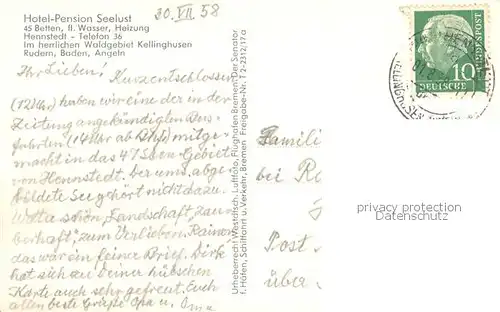 30. VII 58
Hotel-Pension Seelust
45 Betten, fl. Wasser, Heizung
Hennstedt - Telefon 36
Im herrlichen Waldgebiet Kellinghusen
Rudern, Baden, Angeln
Ihr Lieben! Kurzentschlossen
(12 Uhr) haben wir eine der in der
Zeitung angekündigten Bus-
fahrten (14 Uhr ab Bhf) mitge-
macht in das 47 Seen-Gebiet
von Hennstedt. Der ums. abge-
bildete See gehört nicht dazu.
Wetter schön, Landschaft „zau-
berhaft", zum Verlieben. Rainer
das war ein feiner Brief. Dirk
hat sich zu Deiner hübschen
Karte auch sehr gefreut. Euch
allen beste Grüße Opa u. Oma
Urheberrecht Westdtsch. Luftfoto, Flughafen Bremen. Der Senator
f. Häfen, Schiffahrt u. Verkehr, Bremen Freigabe-Nr. T 2-2312/17a
DEUTSCHE
BUNDESPOST
10
Famili
bei Ro
Post
über
privacy protection